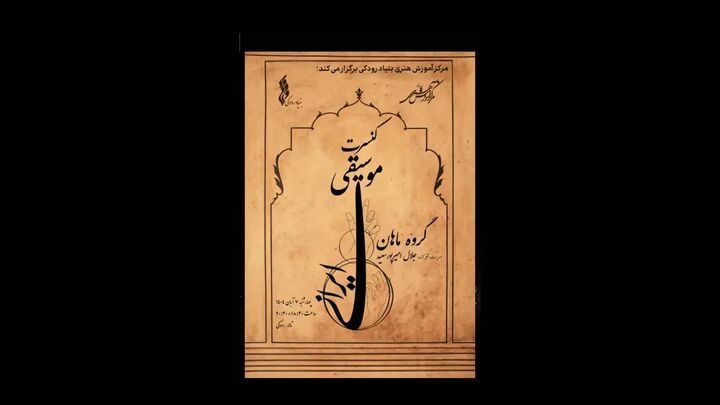 مرکز آموزش هنری بنیاد رودکی برگزار می کند:
بنیاد رودکی
کنسرت
موسیقی
ایرانی
گروه ماهان
جلال امیرپورسعید
چهارشنبه ۷ آبان ۱۴۰۴
ساعت ۱۸:۳۰ و ۲۰:۳۰
تالار رودکی